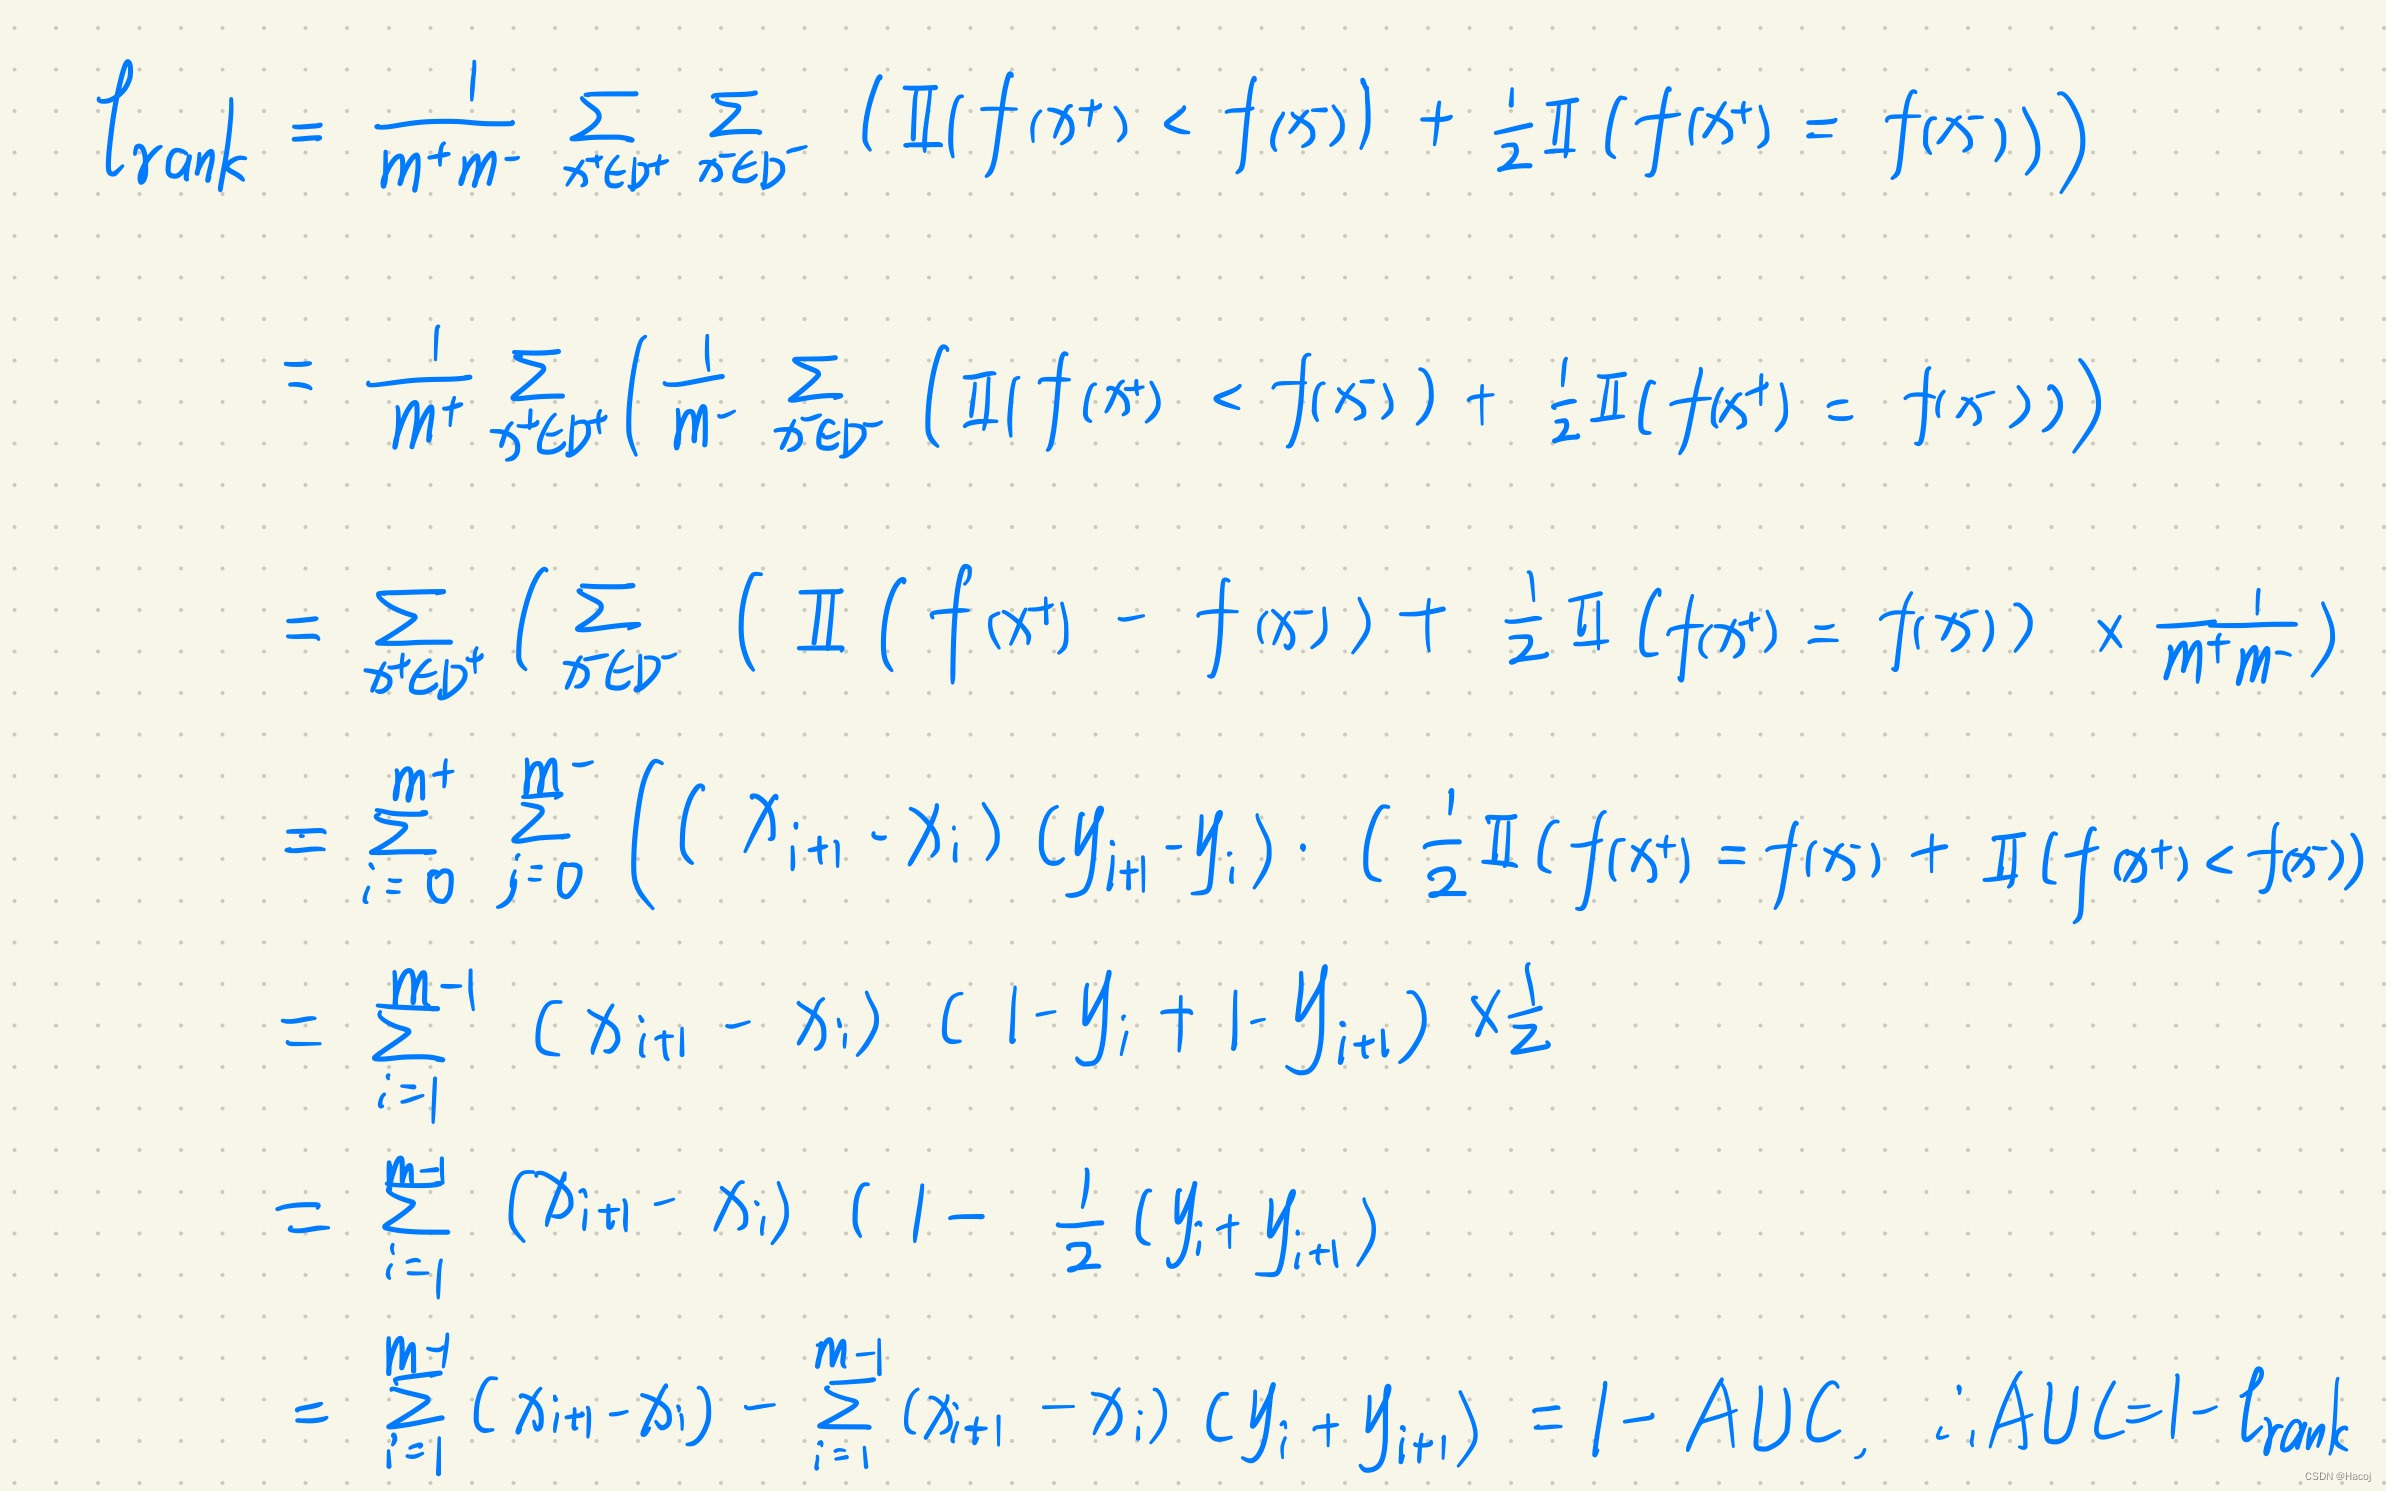 ℓ_rank = 1/(m⁺m⁻) Σ_{x⁺∈D⁺} Σ_{x⁻∈D⁻} (𝕀(f(x⁺) < f(x⁻)) + 1/2 𝕀(f(x⁺) = f(x⁻)))
= 1/m⁺ Σ_{x⁺∈D⁺} (1/m⁻ Σ_{x⁻∈D⁻} (𝕀(f(x⁺) < f(x⁻)) + 1/2 𝕀(f(x⁺) = f(x⁻))))
= Σ_{x⁺∈D⁺} (Σ_{x⁻∈D⁻} (𝕀(f(x⁺) - f(x⁻)) + 1/2 𝕀(f(x⁺) = f(x⁻)) × 1/(m⁺m⁻))
= Σ_{i=0}^{m⁺} Σ_{j=0}^{m⁻} ((x_{i+1} - x_i)(y_{i+1} - y_i) · (1/2 𝕀(f(x⁺) = f(x⁻) + 𝕀(f(x⁺) < f(x⁻))
= Σ_{i=1}^{m-1} (x_{i+1} - x_i)(1 - y_i + 1 - y_{i+1}) × 1/2
= Σ_{i=1}^{m-1} (x_{i+1} - x_i)(1 - 1/2 (y_i + y_{i+1})
= Σ_{i=1}^{m-1} (x_{i+1} - x_i) - Σ_{i=1}^{m-1} (x_{i+1} - x_i)(y_i + y_{i+1}) = 1 - AUC, ∴ AUC = 1 - ℓ_rank
CSDN @Hacoj